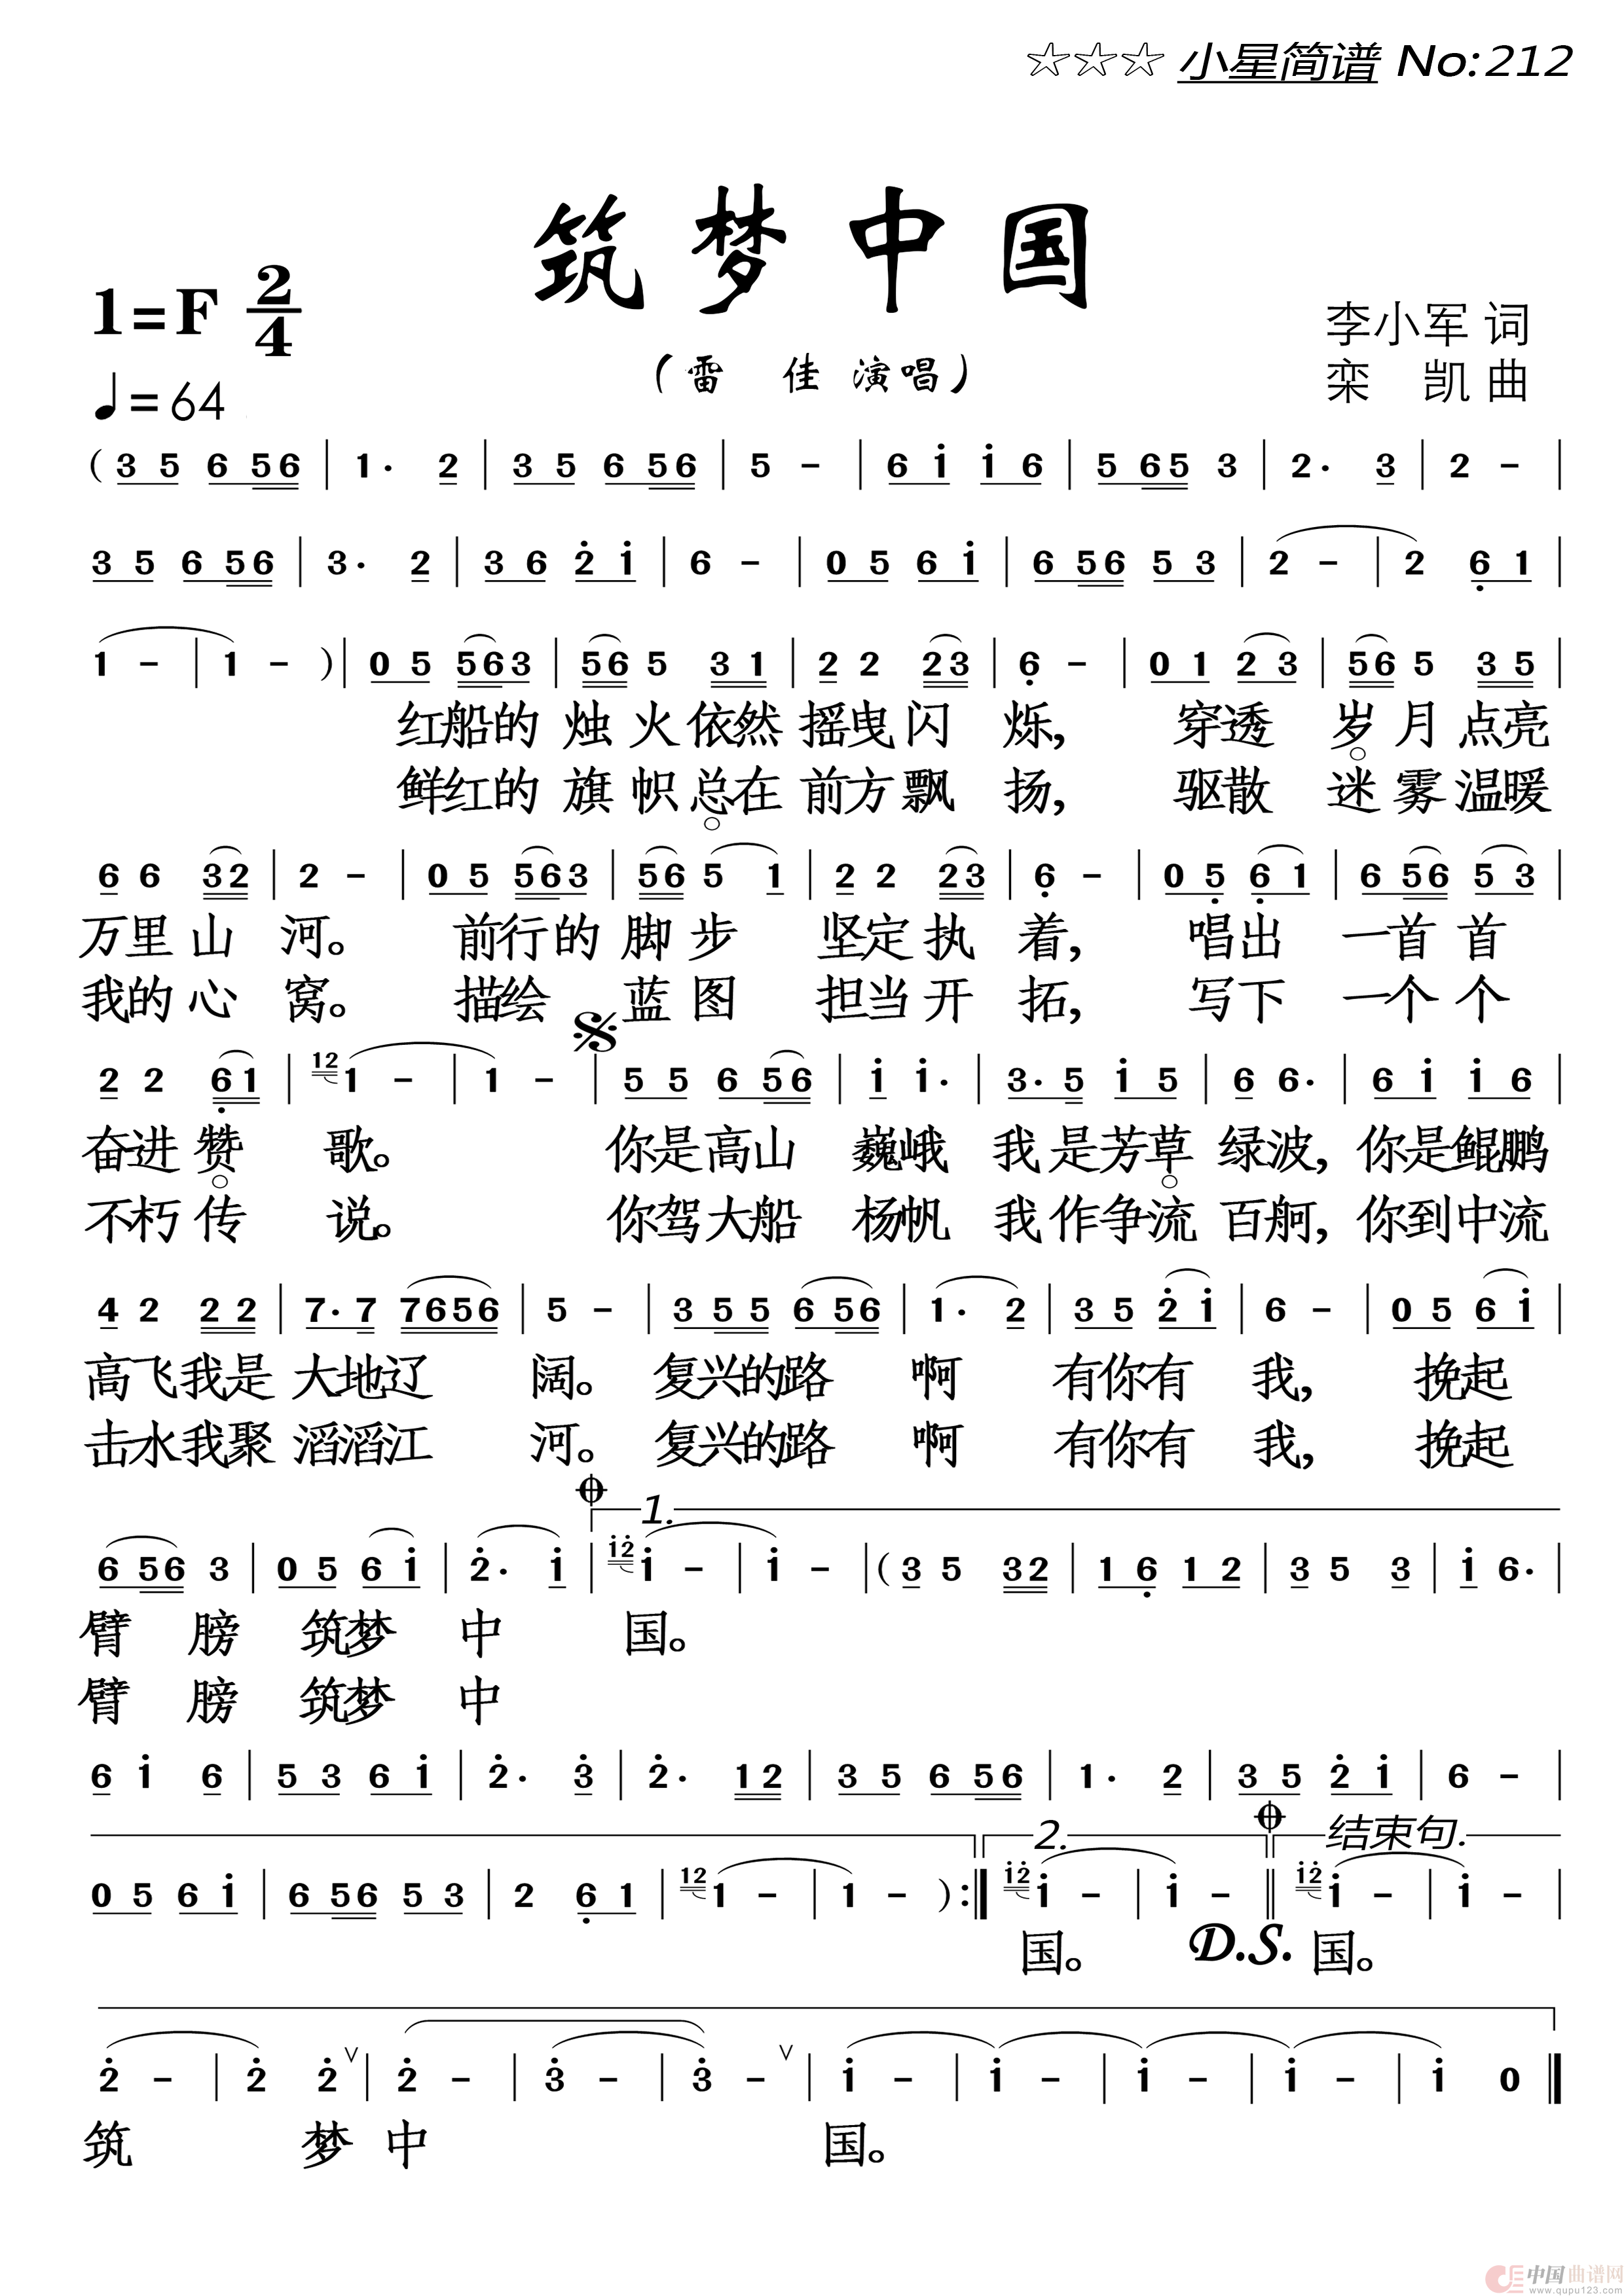 ☆☆☆ 小星简谱 No:212
筑梦中国
1=F 2/4
李小军 词
(雷 佳 演唱)
栾 凯 曲
♩=64
(3 5 6 56 | 1. 2 | 3 5 6 56 | 5 - | 6 i i 6 | 5 65 3 | 2. 3 | 2 - |
3 5 6 56 | 3. 2 | 3 6 2̇ i | 6 - | 0 5 6 i | 6 56 5 3 | 2 - | 2 6̣ 1 |
1 - | 1 - )| 0 5 563 | 56 5 3 1 | 2 2 23 | 6̣ - | 0 1 2 3 | 56 5 3 5 |
红船的 烛 火依然 摇曳闪 烁, 穿透 岁月点亮
鲜红的 旗 帜总在 前方飘 扬, 驱散 迷雾温暖
6 6 32 | 2 - | 0 5 563 | 56 5 1 | 2 2 23 | 6̣ - | 0 5̣ 6̣ 1 | 6 56 5 3 |
万里山 河。 前行的 脚 步 坚定执 着, 唱出 一首 首
我的心 窝。 描绘 蓝 图 担当开 拓, 写下 一个 个
2 2 6̣1 | 12 1 - | 1 - | 5 5 6 56 | i i. | 3. 5 i 5 | 6 6. | 6 i i 6 |
奋进赞 歌。 你是高山 巍峨 我是芳草 绿波, 你是鲲鹏
不朽传 说。 你驾大船 杨帆 我作争流 百舸, 你到中流
4 2 2 2 | 7. 7 7656 | 5 - | 3 5 5 6 56 | 1. 2 | 3 5 2̇ i | 6 - | 0 5 6 i |
高飞我是 大地辽 阔。 复兴的路 啊 有你有 我, 挽起
击水我聚 滔滔江 河。 复兴的路 啊 有你有 我, 挽起
1.
6 56 3 | 0 5 6 i | 2̇. i | i2̇ i - | i - |(3 5 32 | 1 6̣ 1 2 | 3 5 3 | i 6. |
臂 膀 筑梦 中 国。
臂 膀 筑梦 中
6 i 6 | 5 3 6 i | 2̇. 3̇ | 2̇. 12 | 3 5 6 56 | 1. 2 | 3 5 2̇ i | 6 - |
2. 结束句.
0 5 6 i | 6 56 5 3 | 2 6̣ 1 | 12 1 - | 1 - ):| i2̇ i - | i - || i2̇ i - | i - |
国。 D.S. 国。
2̇ - | 2̇ 2̇ ∨| 2̇ - | 3̇ - | 3̇ - ∨| i - | i - | i - | i - | i 0 ||
筑 梦 中 国。
中国曲谱网
www.qupu123.com